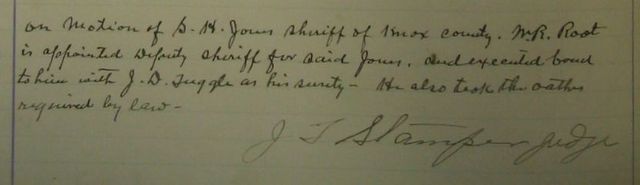 on Motion of S. H. Jones sheriff of Knox county. W.R. Root
is appointed Deputy sheriff for said Jones, and executed bond
to him with J. D. Tuggle as his surety - He also took the oathes
required by law -
J T Stamper Judge